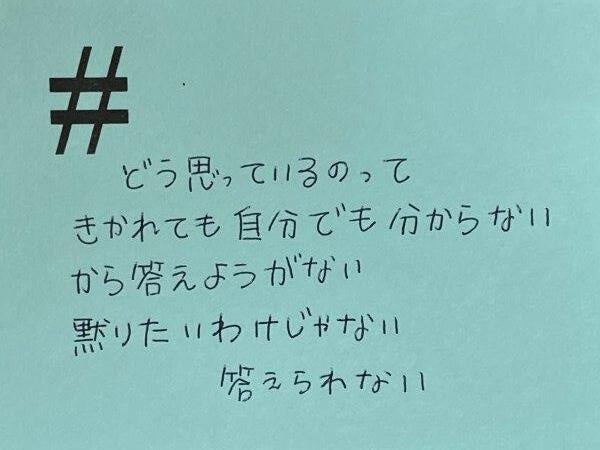 #
どう思っているのって
きかれても自分でも分からない
から答えようがない
黙りたいわけじゃない
答えられない